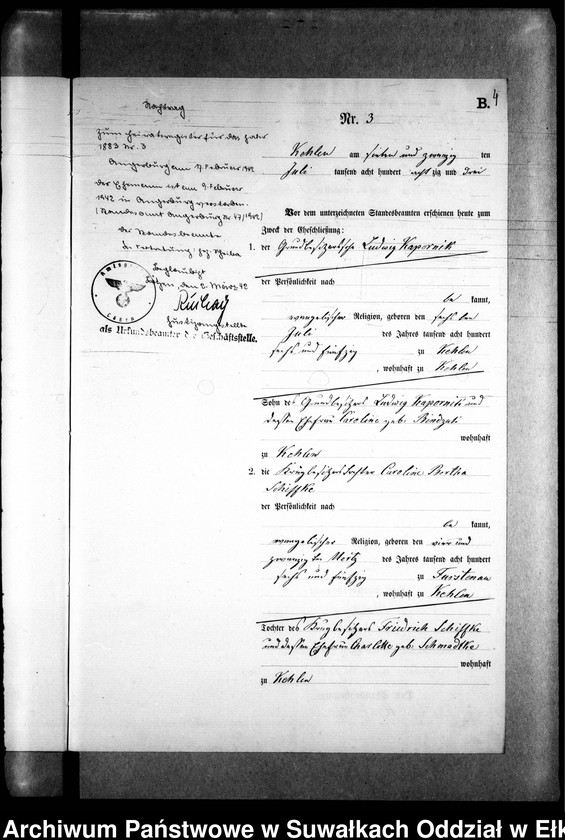 B. 4
Nr. 3
Nachtrag
zum Heiratsregister für das Jahr
1883 Nr. 3
Angerburg am 17. Februar 1942
Der Ehemann ist am 9. Februar
1942 in Angerburg verstorben.
(Standesamt Angerburg Nr. 47/1942)
Der Standesbeamte
In Vertretung gez.
Beglaubigt
den 2. März 42
Justizangestellte
als Urkundsbeamter d. Geschäftsstelle.
Kehlen am sieben und zwanzig ten
Juli tausend acht hundert acht zig und drei
Vor dem unterzeichneten Standesbeamten erschienen heute zum
Zweck der Eheschließung:
1. der Grundbesitzerssohn Ludwig Kapornik
der Persönlichkeit nach
be kannt,
evangelischer Religion, geboren den sechsten
Juli des Jahres tausend acht hundert
sechs und fünfzig zu Kehlen
, wohnhaft zu Kehlen
Sohn des Grundbesitzers Ludwig Kapornik und
dessen Ehefrau Caroline geb.
wohnhaft
zu Kehlen
2. die Krugbesitzerstochter Caroline Bertha
Schiffke
der Persönlichkeit nach
be kannt,
evangelischer Religion, geboren den vier und
zwanzigsten März des Jahres tausend acht hundert
sechs und fünfzig zu Fürstenau
, wohnhaft zu Kehlen
Tochter des Krugbesitzers Friedrich Schiffke
und dessen Ehefrau Charlotte geb. Schmadtke
wohnhaft
zu Kehlen
Archiwum Państwowe w Suwałkach Oddział w Ełk